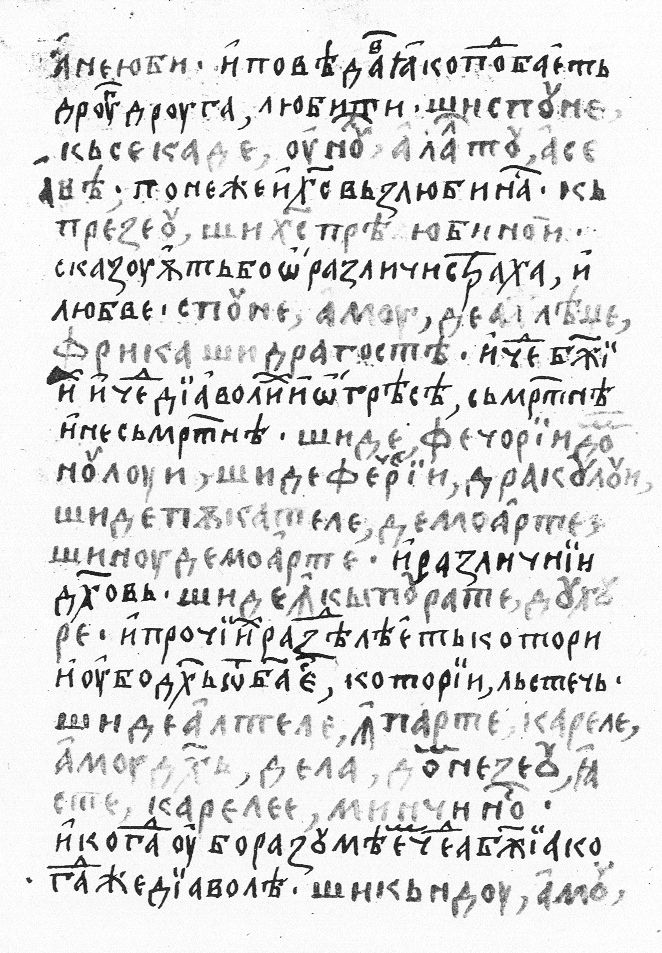 а҆неюби · и҆повѣдаⷡꙗ҆копоⷣбае҆ть
дроугⷹ дроуга, любити · шиспꙋне,
кьсекаде, оу҆нꙋ, а҆лалтꙋ, а҆се
а҆вѣ; понежеи҆х҃севьзлюбина҃ · кь
презеꙋ, ших҃спрѣ юбиной ·
сказоуѫ҆тьбоѿразличистраха, и҆
любве · спꙋне, а҆моу, деа лѣце,
фрикашидрагосте · и҆чеⷣбж҃їи
и҆ и҆чеⷣдїа҆волїи҆ и҆ѿтрѣсѣ, сьмртнѣ
и҆несьмртнѣ · шиде, фечорїидо
нꙋлоуи, шидеферїи, дракꙋлꙋи,
шидепѫкателе, демоа҆рте
шиноудемоа҆рте · и҆различнїи
дх҃овь · шидеꙟкыпꙋрате, дꙋхꙋ
ре · и҆прочїи҆ раⷥдѣлѣе҆тькотори
и҆оу҆бодх҃ьѿба҃е҆, которїи, льстечь ·
шидеа҆лтеле, ꙟпарте, кареле,
а҆моудх҃ь, дела, дꙋмнезеꙋ, ꙗ҆
сте, карелее, минчино ·
и҆когаⷣоу҆боразꙋмѣешичеⷣабж҃їако
гаⷣжедїаволѣ · шикьндоу, а҆мꙋ,